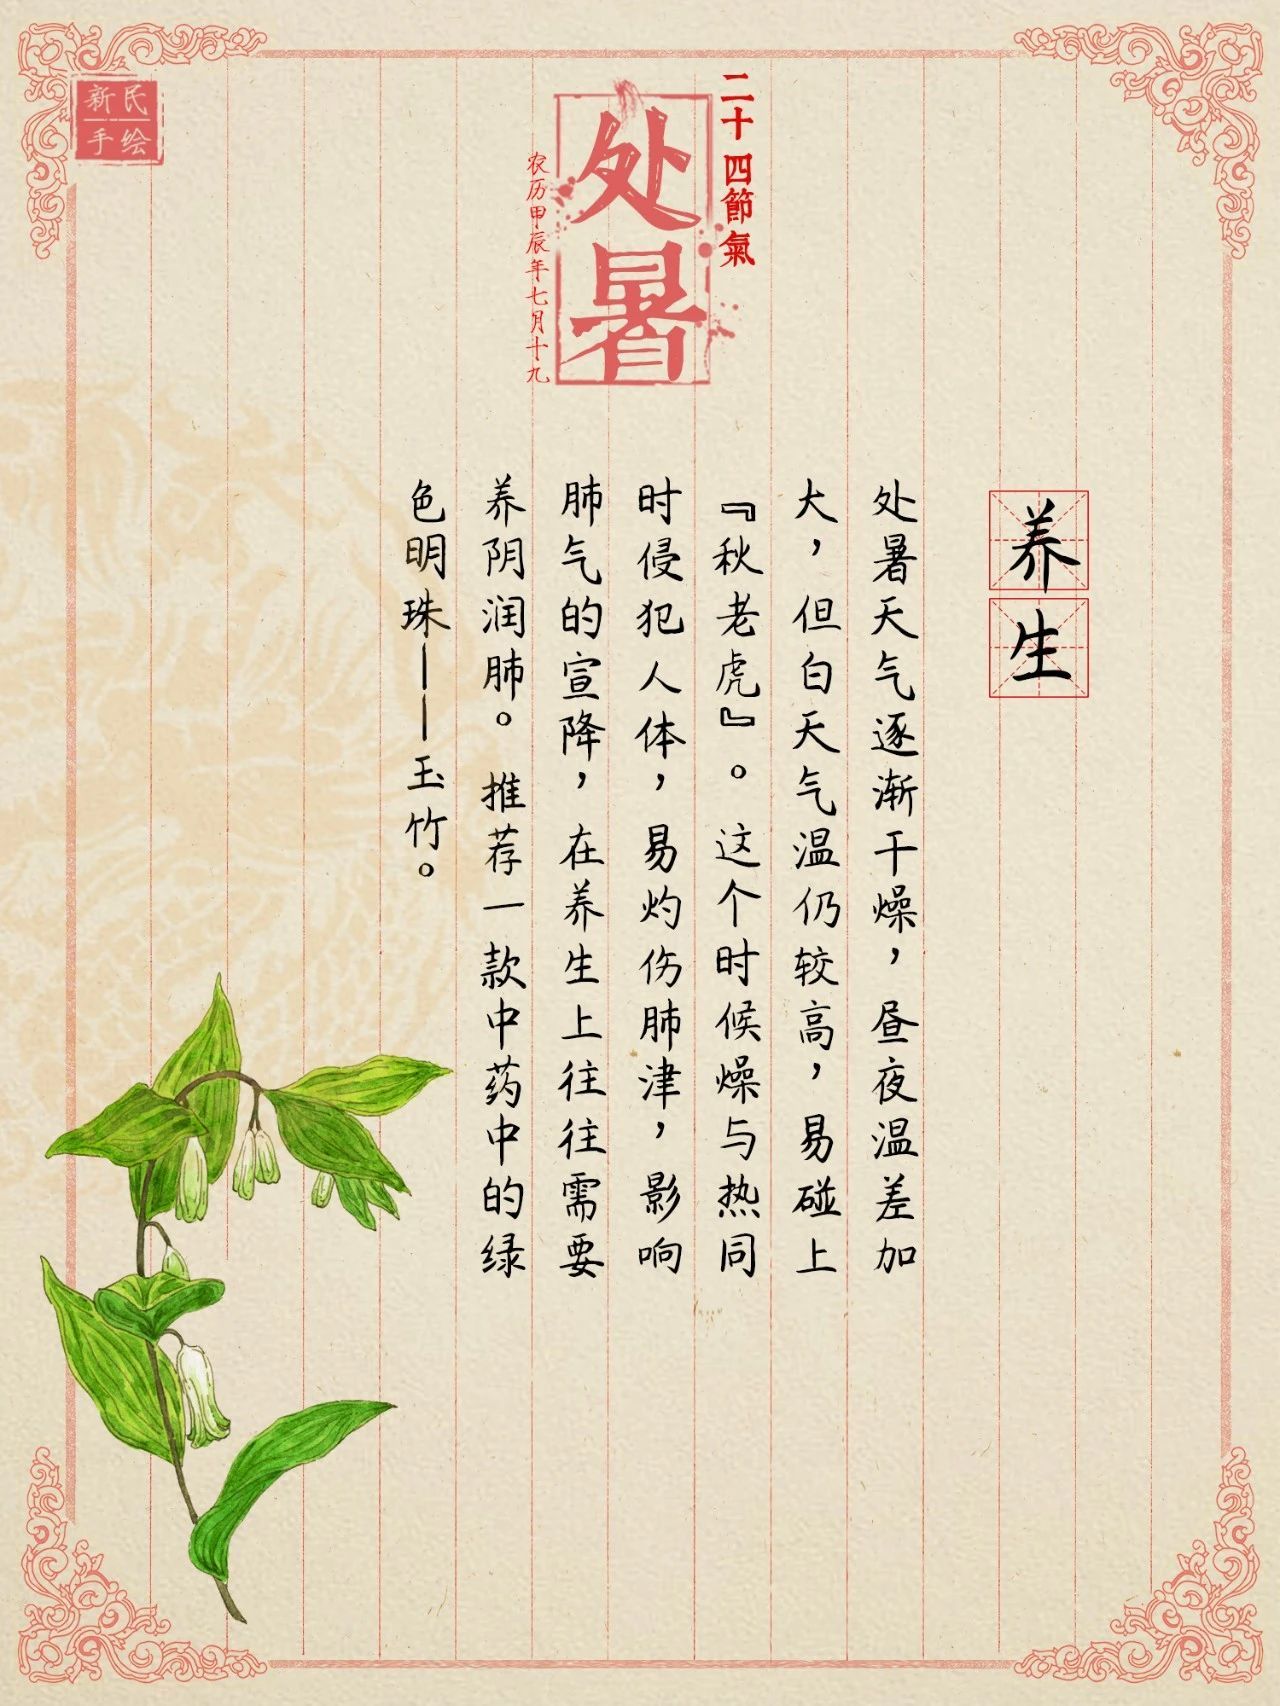 新民
手绘
二十四節氣
处暑
农历甲辰年七月十九
养生
处暑天气逐渐干燥，昼夜温差加
大，但白天气温仍较高，易碰上
『秋老虎』。这个时候燥与热同
时侵犯人体，易灼伤肺津，影响
肺气的宣降，在养生上往往需要
养阴润肺。推荐一款中药中的绿
色明珠——玉竹。